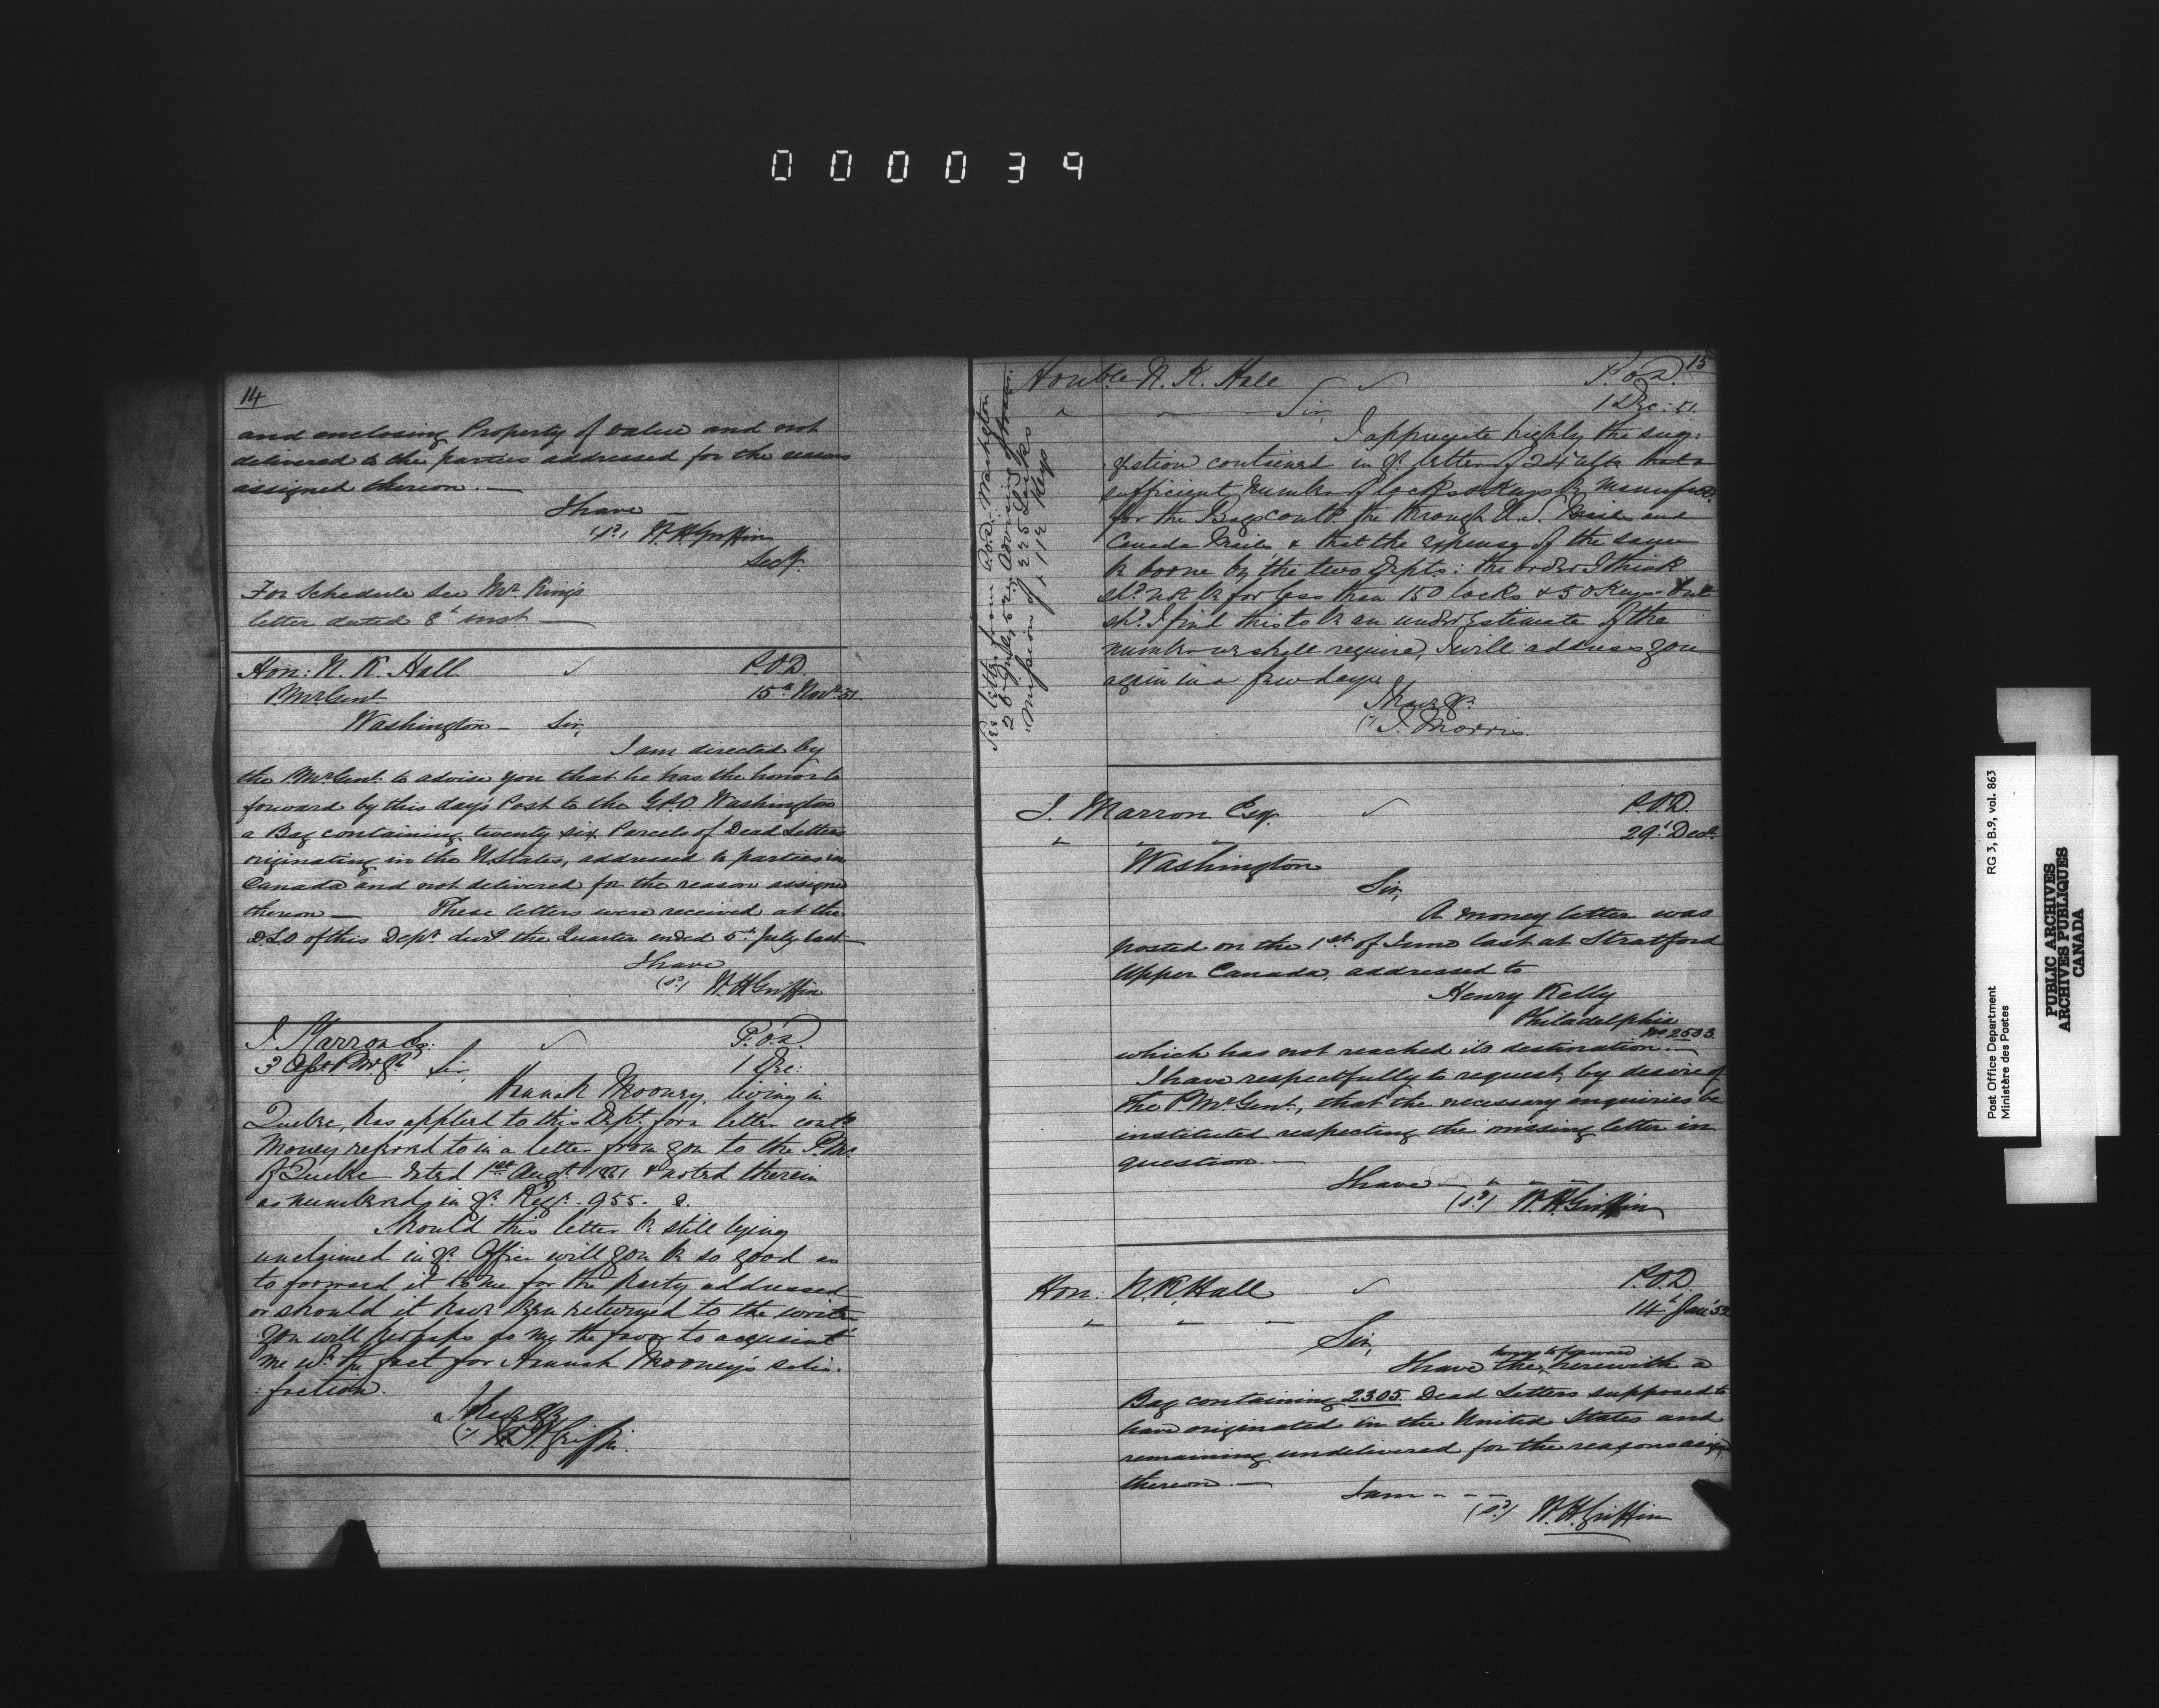 000039
14
and enclosing Property of value and not
delivered to the parties addressed for the reasons
assigned thereon. —
I have —
(sd) W. H. Griffin
Secy.
For Schedule see Mr. King's
letter dated 8t inst —
Hon: N. K. Hall
P.O.D
P Mr Genl
15th Novr 51.
Washington — Sir,
I am directed by
the P Mr Genl. to advise you that he has the honor to
forward by this day's Post to the G.P.O. Washington
a Bag containing twenty six Parcels of Dead Letters
originating in the U. States, addressed to parties in
Canada and not delivered for the reason assigned
thereon — These letters were received at the
D.L.O of this Dept. during the Quarter ended 5th July last —
I have
(sd) W. H. Griffin
J. Marron Esq:
P.O.D.
3 Asst P Mr Gl Sir,
1 Dec:
Hannah Mooney, living in
Quebec, has applied to this Dept. for a letter contg
Money referred to in a letter from you to the P.Mr.
of Quebec dated 1st Augt 1851 & noted therein
as numbered in yr. Regr. 955.
Should this letter be still lying
unclaimed in yr. Office will you be so good as
to forward it to me for the party addressed
or should it have been returned to the writer
you will perhaps do me the favor to acquaint
me wh. the fact for Hannah Mooney's satis-
:faction.
I have &c
(sd) W. H. Griffin.
15
Honble N. K. Hall
P.O.D.
" " Sir,
1 Dec: 51.
I appreciate highly the sug:
:gestion contained in yr. letter of 24th ulto that a
sufficient number of locks & Keys be manufd.
for the Bags contg. the through U.S. Mails and
Canada Mails, & that the expense of the same
be borne by the two Depts: the order I think
shd. not be for less than 150 locks & 50 Keys. But
shd. I find this to be an under Estimate of the
number we shall require, I will address you
again in a few days.
I have &c.
(sd) J. Morris.
See letter from P.O.D. Washington
26 1852 advising of trans:
:mission of 225 Locks
& 112 Keys
J. Marron Esq.
P.O.D.
" " "
29t Decr.
Washington
Sir,
A money letter was
posted on the 1st of June last at Stratford
Upper Canada, addressed to
Henry Kelly
Philadelphia
No. 2503.
which has not reached its destination. —
I have respectfully to request, by desire of
the P Mr Genl., that the necessary inquiries be
instituted respecting the missing letter in
question. —
I have — " " —
(sd) W. H. Griffin
Hon. N. K. Hall
P.O.D.
" " "
14t Jany 52
Sir,
honor to forward
I have the, herewith a
Bag containing 2305 Dead Letters supposed to
have originated in the United States and
remaining undelivered for the reasons assignd
thereon. —
I am - - -
(sd) W. H. Griffin
Post Office Department
Ministère des Postes
RG 3, B.9, vol. 863
PUBLIC ARCHIVES
ARCHIVES PUBLIQUES
CANADA